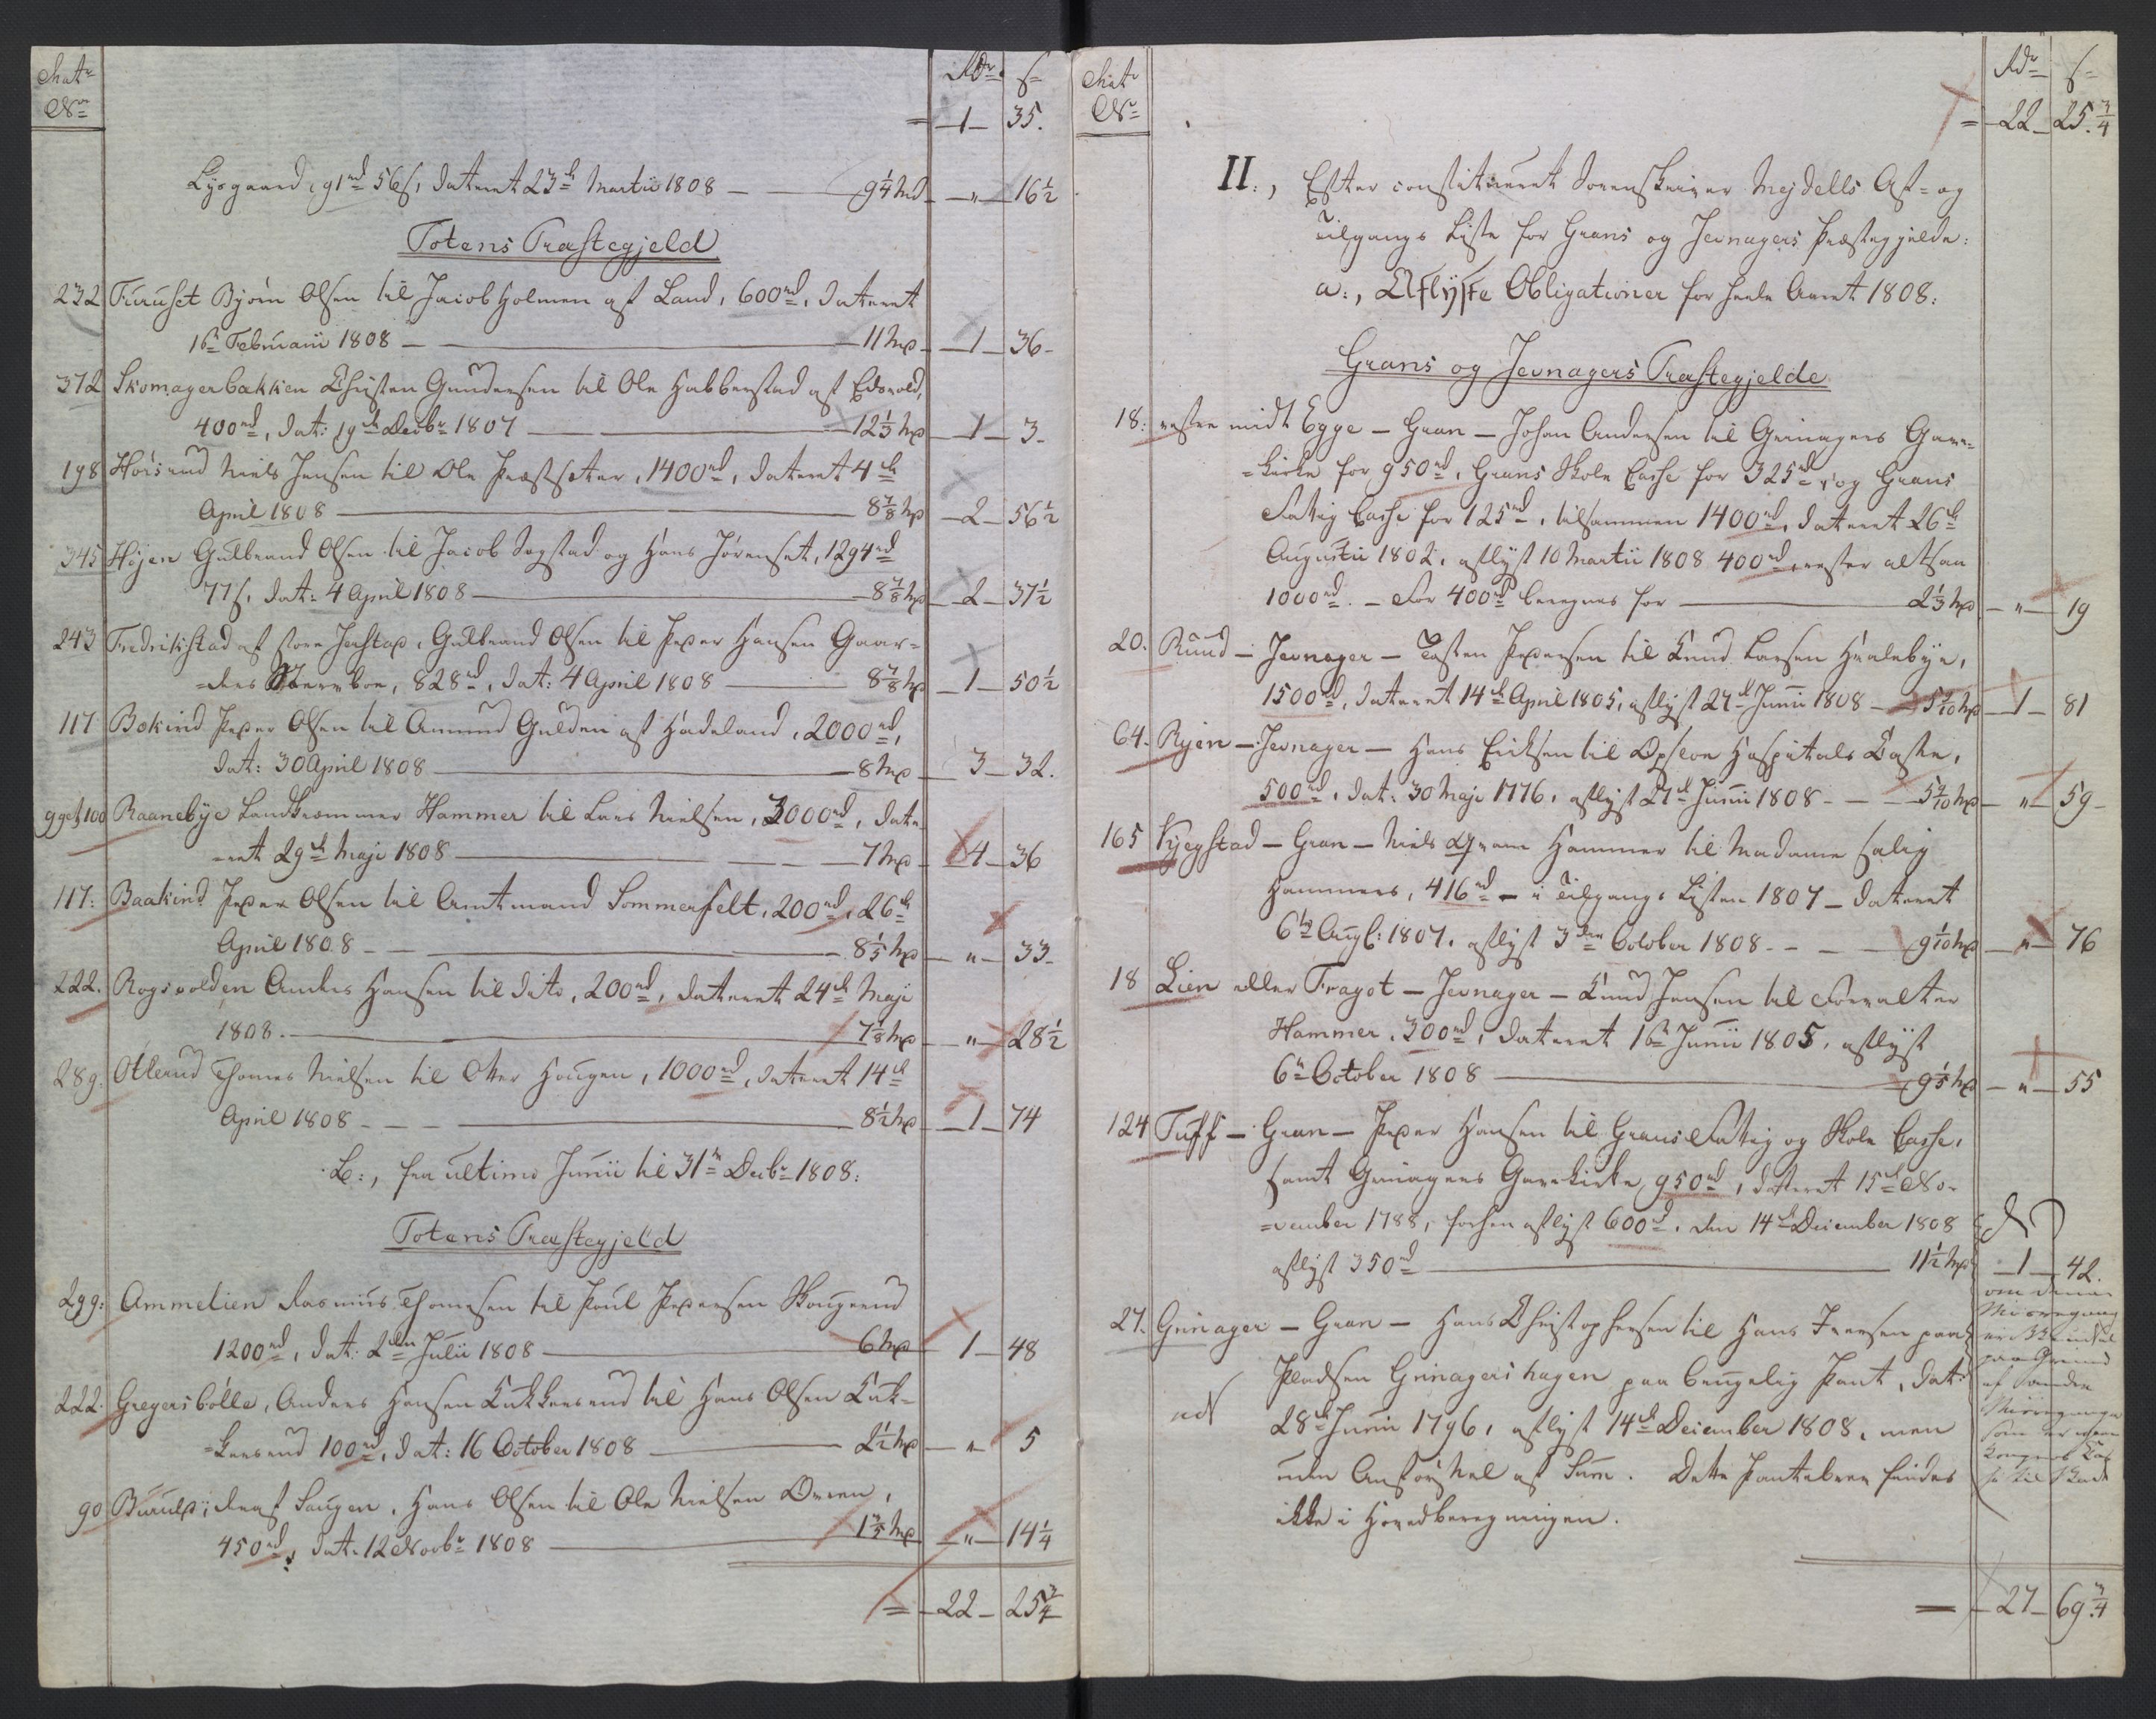 Matr Rdr s
No = 1 35.
Lysgaard, 91rd 56s, dateret 23de Martii 1808 — 9¼ md — " — 16½
Totens Præstegjeld
232 Furuset Bjørn Olsen til Jacob Holmen af Land, 600rd, dateret
16de Februarii 1808 — 11 md — 1 — 36
372 Skomagerbakken Christen Gundersen til Ole Habberstad af Edsvold,
400rd, dat: 19de Decbr 1807 — 12⅓ md — 1 — 3
198 Hørsrud Niels Jensen til Ole Præstsæter, 1400rd, dateret 4de
April 1808 — 8⅞ md — 2 — 56½
345 Højen Gulbrand Olsen til Jacob Sogstad og Hans Jørenset, 1294rd
77s, dat: 4 April 1808 — 8⅞ md — 2 — 37½
243 Fredrikstad af store , Gulbrand Olsen til Peder Hansen Gaar=
=ders Stervboe, 828rd, dat: 4 April 1808 — 8⅞ md — 1 — 50½
117 Bækind Peder Olsen til Amund Gulden af Hadeland, 2000rd,
dat: 30 April 1808 — 8 md — 3 — 32.
99 et 100 Raanebye Landkræmmer Hammer til Lars Nielsen, 3000rd, date-
=ret 29de Maji 1808 — 7 md — 4 — 36
117: Baakind Peder Olsen til Amtmand Sommerfelt, 200rd, 26de
April 1808 — 8⅕ md — " — 33
222. Rognvolden Anders Hansen til dito, 200rd, dateret 24de Maji
1808. — 7⅛ md — " — 28½
289. Ottrud Thomes Nielsen til Iver Hougen, 1000rd, dateret 14de
April 1808 — 8½ md — 1 — 74
b:, fra ultimo Junii til 31te Decbr 1808:
Totens Præstegjeld
299: Ammelien Rasmus Thomesen til Poul Pedersen Skougerud
1200rd, dat: 2den Julii 1808 — 6 md 1 — 48
222. Gregersbølle, Anders Hansen til Hans Olsen
100rd, dat: 16 October 1808 — 2½ md — " — 5
90 af Haugen, Hans Olsen til Ole Nielsen
450rd, dat: 12 Novbr 1808 — 1⅗ md — " — 14¼
= 22 — 25¾
Matr Rdr s
No = 22 — 25¾
II:, Efter constitueret Sorenskriver Mejdells Af- og
Tilgangs Liste for Grans og Jevnagers Præstegjelde:
a:, Aflyste Obligationer for heele Aaret 1808:
Grans og Jevnagers Præstegjelde
18: vestre midt Egge — Gran — Johan Andersen til Grinagers Gave-
=kirke for 950rd, Grans Skole Casse for 325rd, og Grans
Fattig Casse for 125rd, tilsammen 1400rd, dateret 26de
Augustii 1802, aflyst 10 Martii 1808 400rd, rester altsaa
1000rd. — For 400rd beregnes for — 2⅓ md — " — 19
20. Ruud — Jevnager — Tosten Pedersen til Knud Larsen Hvalebye,
1500rd, dateret 14de April 1805, aflyst 27de Junii 1808 — 5 9/10 md — 1 — 81
64. Røen — Jevnager — Hans Ericksen til Opsloe Hospitals Casse,
500rd, dat: 30 Maji 1776, aflyst 27de Junii 1808 — 5 9/10 md — " — 59
165 Kjegstad — Gran — Niels Gram Hammer til Madame salig
Hammers, 416rd — i Tilgangs Listen 1807 — dateret
6te Aug: 1807, aflyst 3die October 1808 — 9 1/10 md — " — 76
18 Lien eller Fragot — Jevnager — Knud Jensen til Forvalter
Hammer, 300rd, dateret 16de Junii 1805, aflyst
6te October 1808 — 9⅕ md — " — 55
124 Tuff — Gran — Peder Hansen til Grans Fattig og Skole Casse,
samt Grinagers Gavekirke 950rd, dateret 15de No-
=vember 1788, forhen aflyst 600rd, den 14de December 1808
aflyst 350rd — 11½ md — 1 — 42.
27. Grinager — Gran — Hans Christophersen til Hans Iversen paa
Pladsen Grinagershagen paa brugelig Pant, dat:
28de Junii 1796, aflyst 14de December 1808, men
uden Anførsel af Sum. Dette Pantebrev findes
ikke i Hovedberegningen.
om denne
Misregning
paa Grund
af
som er
til Skade
= 27 — 69¾